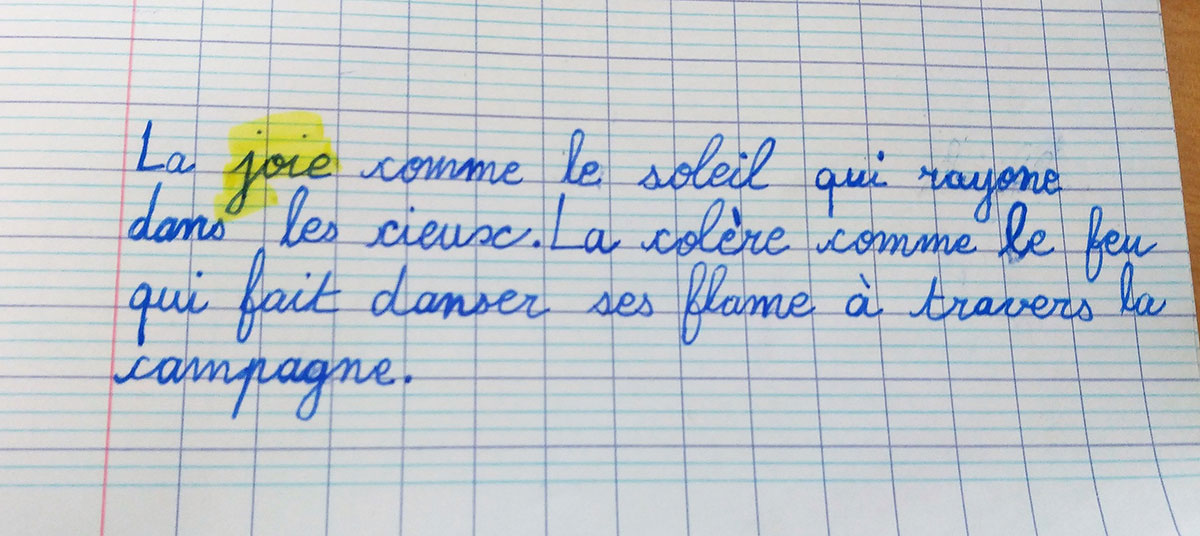 La joie comme le soleil qui rayone
dans les cieux. La colère comme le feu
qui fait danser ses flame à travers la
campagne.